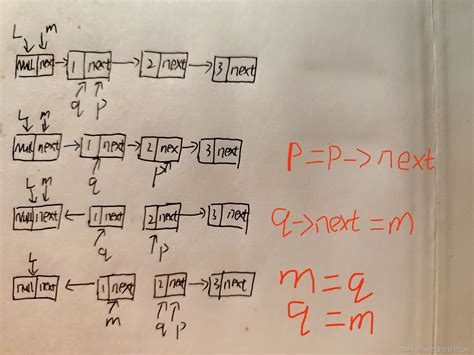 L m
null next 1 next 2 next 3 next
q p
L m
null next 1 next 2 nex 3 next
q p
P=P->next
L m
null next 1 next 2 next 3 next
q p
q->next=m
L
null next 1 next 2 next 3 next
m q p
m=q
q=m